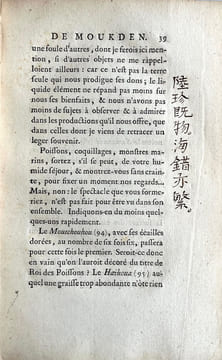 DE MOUKDEN. 39
une foule d'autres, dont je ferois ici men-
tion, si d'autres objets ne me rappel-
loient ailleurs : car ce n'est pas la terre
seule qui nous prodigue ses dons ; le li-
quide élément ne répand pas moins sur
nous ses bienfaits, & nous n'avons pas
moins de sujets à observer & à admirer
dans les productions qu'il nous offre, que
dans celles dont je viens de retracer un
leger souvenir.
Poissons, coquillages, monstres ma-
rins, sortez, s'il se peut, de votre hu-
mide séjour, & montrez-vous sans crain-
te, pour fixer un moment nos regards...
Mais, non : le spectacle que vous forme-
riez, n'est pas fait pour être vu dans son
ensemble. Indiquons-en du moins quel-
ques-uns rapidement.
Le Mouchouhou (94), avec ses écailles
dorées, au nombre de six fois six, passera
pour cette fois le premier. Seroit-ce donc
en vain qu'on l'auroit décoré du titre de
Roi des Poissons ? Le Hashoua (95) au-
quel une graisse trop abondante n'ôte rien
陸珍既物海錯亦繁。